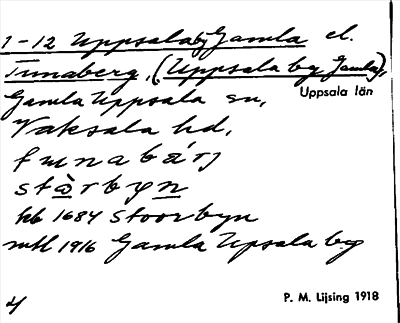 1-12 Uppsala by Gamla el.
Tunaberg, (Uppsala by Gamla),
Gamla Uppsala sn,
Uppsala län
Vaksala hd,
stàrbyn
kb 1684 Stoorbyn
mtl 1916 Gamla Upsala by
P. M. Lijsing 1918